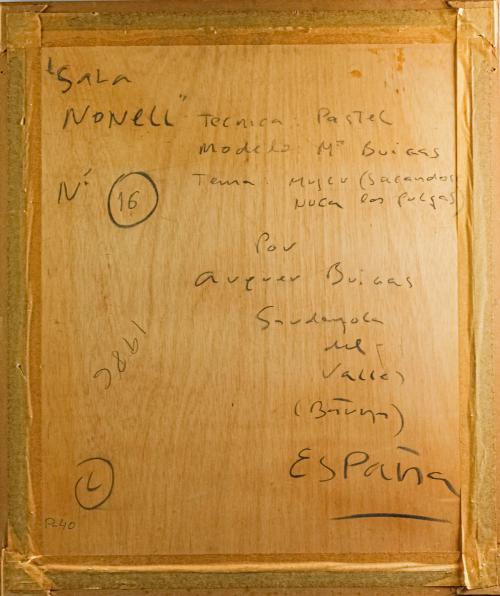 "Sala
Nonell"
Tecnica: Pastel
Modelo: Mª Buigas
Tema: Mujer (Sacandose
nuca las pulgas)
Nº 16
Por
Buigas
Sardanyola
del
Valles
(B
España
1986
L
PL40